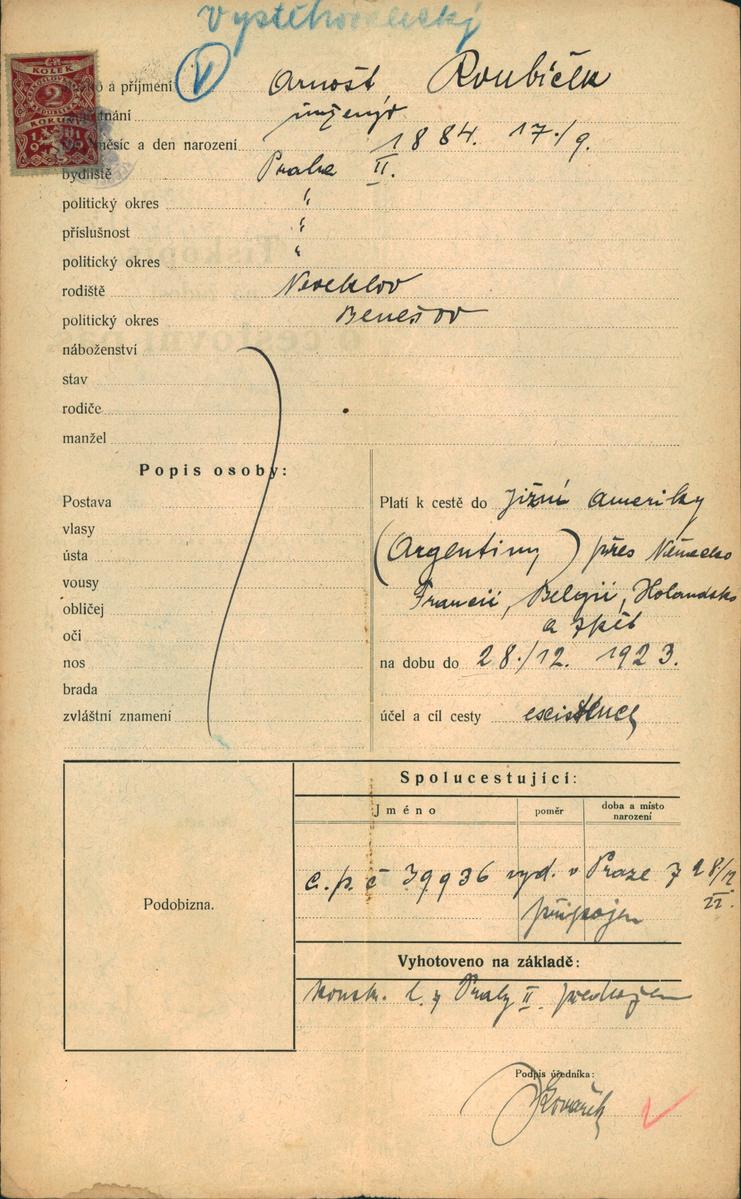 Vystěhovalecký
KOLEK
2
Jméno a příjmení V Arnošt Roubíček
zaměstnání inženýr
měsíc a den narození 1884. 17./9.
bydliště Praha II.
politický okres "
příslušnost "
politický okres "
rodiště Neveklov
politický okres Benešov
náboženství
stav
rodiče
manžel
Popis osoby:
Postava
vlasy
ústa
vousy
obličej
oči
nos
brada
zvláštní znamení
Platí k cestě do Jižní Ameriky
(Argentiny) přes Německo
Francii, Belgii, Holandsko
a zpět
na dobu do 28./12. 1923.
účel a cíl cesty existence
Spolucestující:
Jméno poměr doba a místo narození
c. p. č 39936 vyd. v Praze
připojen
Podobizna.
Vyhotoveno na základě:
konsk. l. z Prahy II. předložen
Podpis úředníka:
Kovařík